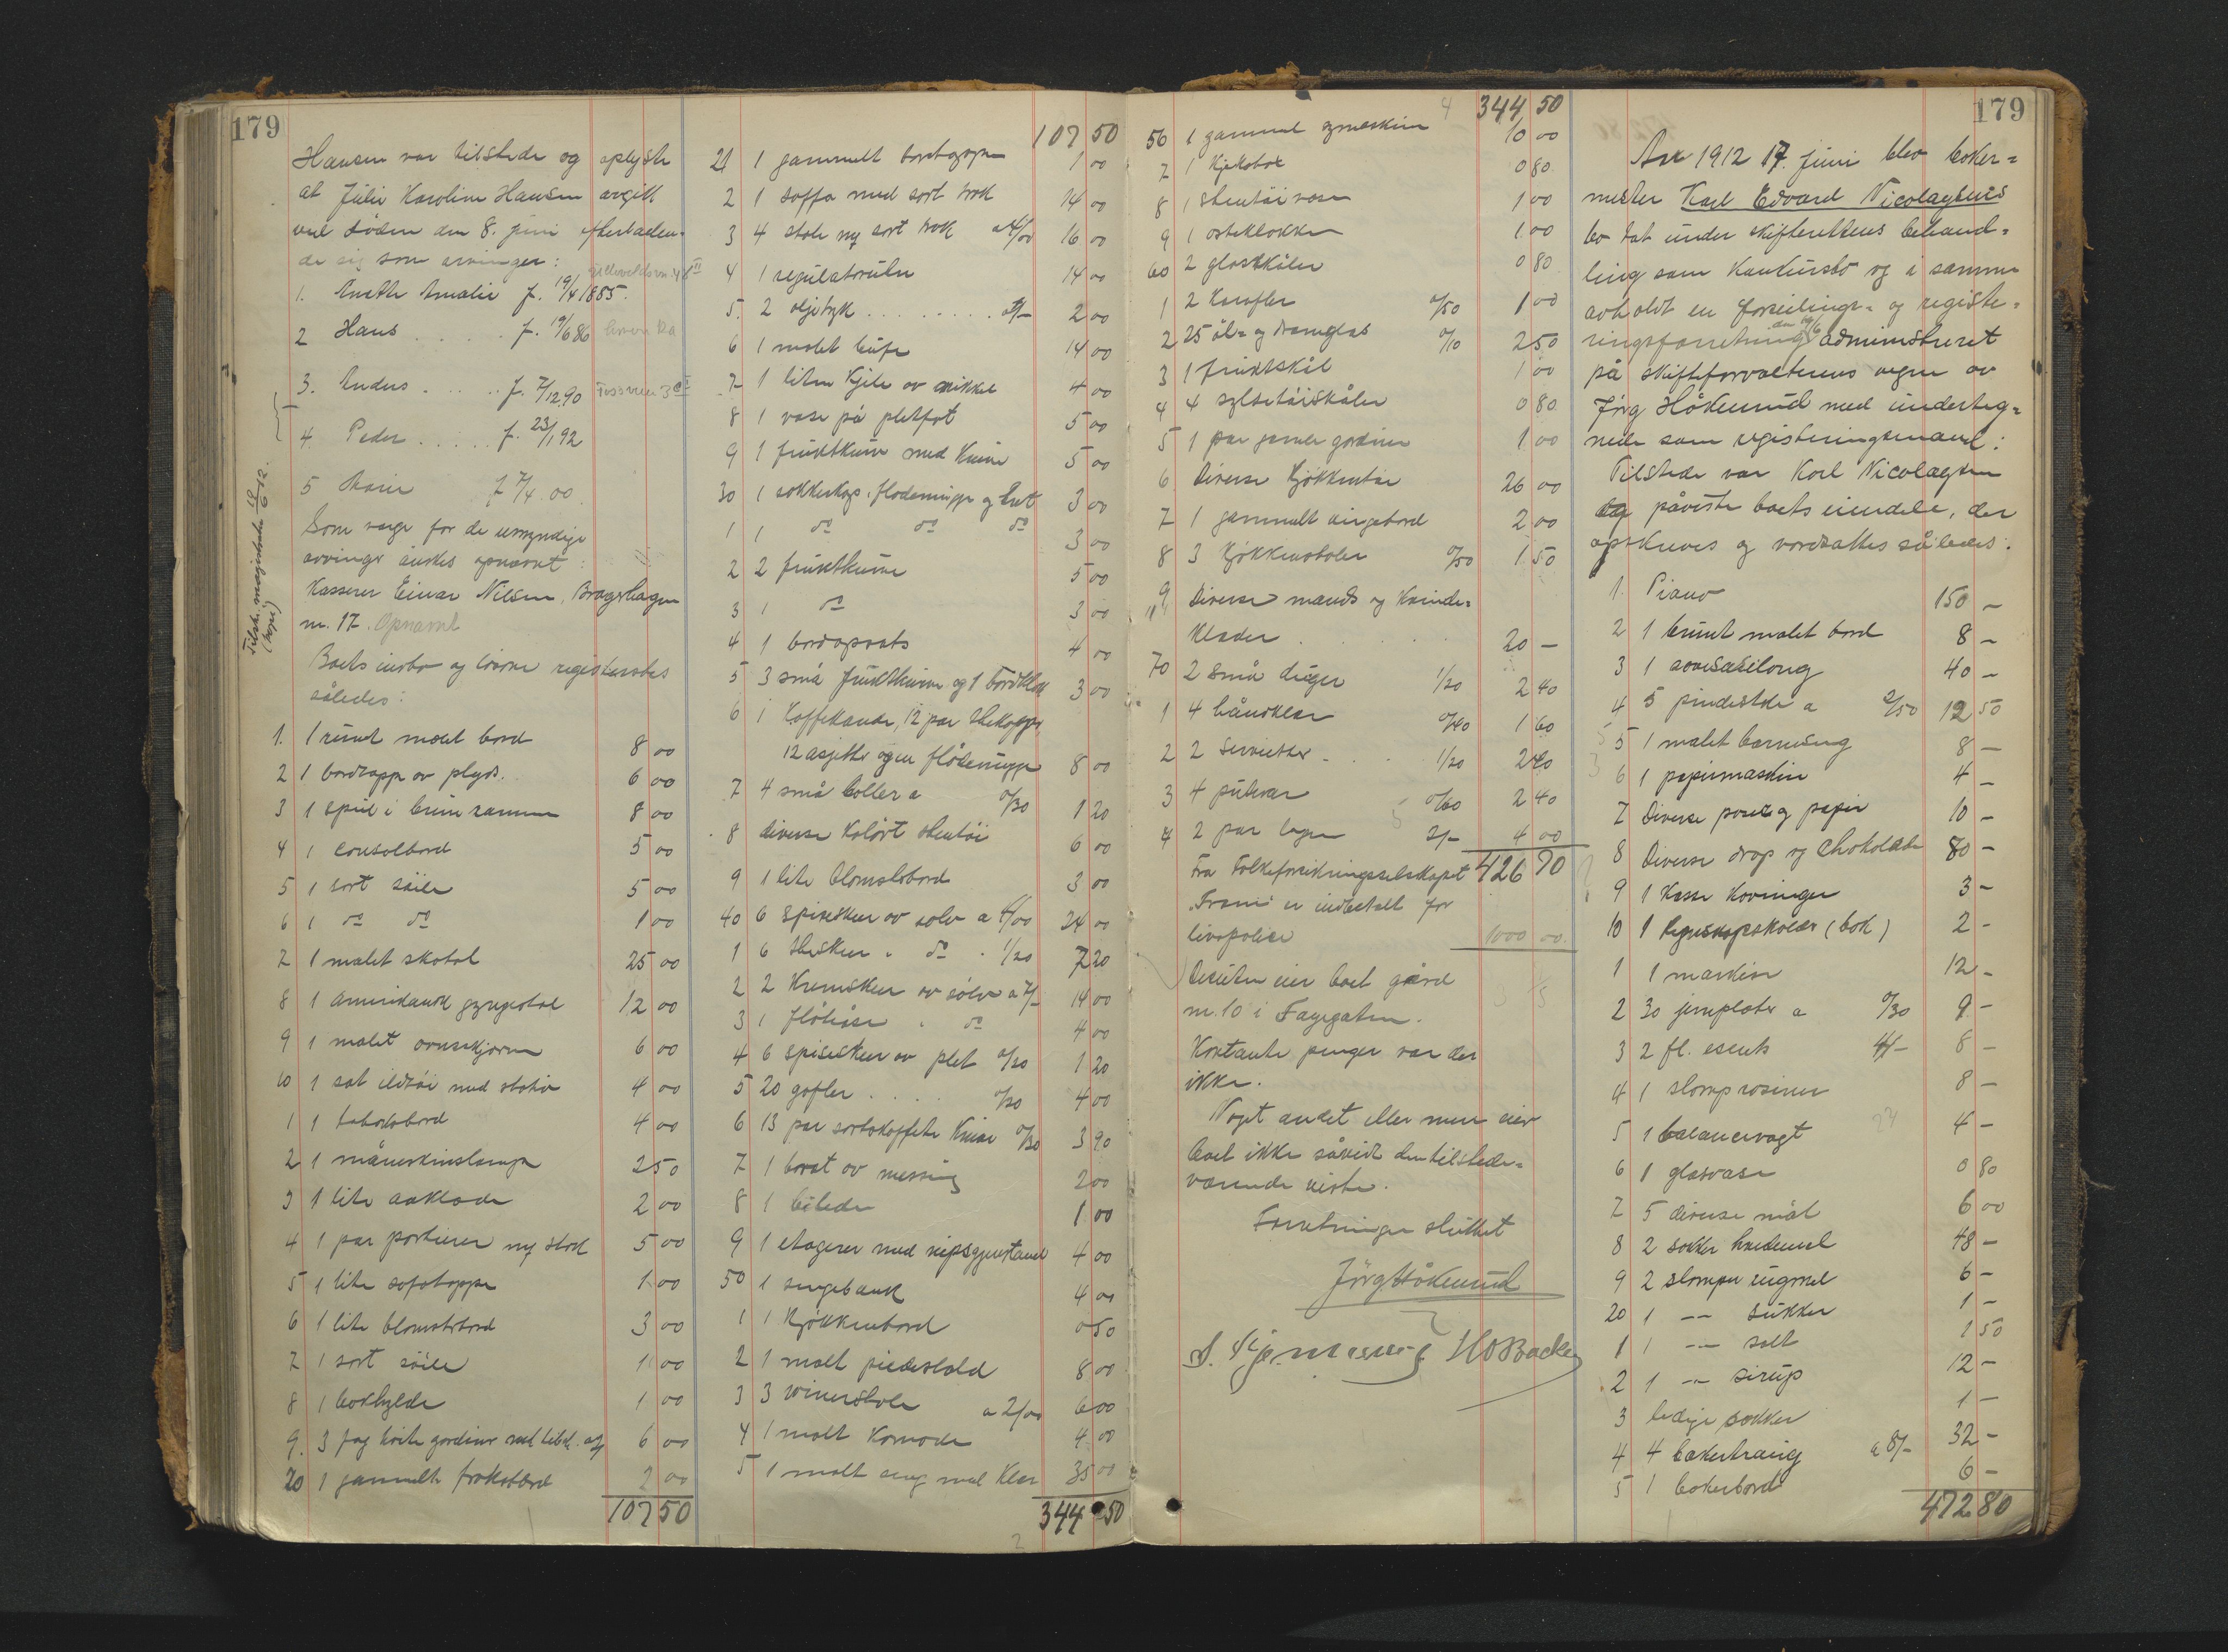 179
Hansen var tilstede og oplyste
at Julie Karoline Hansen avgik
ved døden den 8. juni efterladen-
de sig som arvinger:
1. Anette Amalie f. 19/4 1885.
2 Hans . . . . . f. 19/6 86
3. Anders . . . . . f. 7/12 90
4. Peder . . . . . f. 23/1 92
5 Marie f. 7/4 00
Som verge for de umyndige
arvinger ønskes opnævnt:
Kasserer Einar Nilsen, Bragerhagen
nr. 17. Opnævnt
Boets indbo og løsøre registrertes
således:
1. 1 rundt malet bord 8 00
2 1 bordtæppe av plyds. 6 00
3 1 speil i brun ramme 8 00
4 1 consolbord 5 00
5 1 sort søile 5 00
6 1 do do 1 00
7 1 malet skatol 25 00
8 1 amerikansk gyngestol 12 00
9 1 malet ovnskjærm 6 00
10 1 sat ildtøi med stativ 4 00
1 1 tobaksbord 4 00
2 1 måneskinslampe 2 50
3 1 lite aaklæde 2 00
4 1 par portierer og stok 5 00
5 1 lite sofatæppe 1 00
6 1 lite blomsterbord 3 00
7 1 sort søile 1 00
8 1 bokhylde 1 00
9. 3 fag hvite gardiner med tilbeh. a 2/ 6 00
20 1 gammelt frokostbord 2 00
107 50
107 50
21 1 gammelt bordtæppe 1 00
2 1 soffa med sort træk 14 00
3 4 stole og sort træk a 4/00 16 00
4 1 regulatoruhr 14 00
5. 2 oljetryk . . . . . . . a 1/- 2 00
6 1 malet buffe 14 00
7 1 liten kjele av nikkel 4 00
8 1 vase på pletfot 5 00
9 1 fruktkurv med kniver 5 00
30 1 sukkerkop, flødemugge og bret 3 00
1 1 do do do 3 00
2 2 fruktkurve 5 00
3 1 do 3 00
4 1 bordopsats 4 00
5 3 små fruktkurve og 1 bordklokke 3 00
6 1 kaffekande, 12 par thekopper,
12 asjetter og en flødemugge 8 00
7 4 små boller a 0/30 1 20
8 diverse kulørt stentøi 6 00
9 1 lite blomsterbord 3 00
40 6 spiseskeer av sølv a 4/00 24 00
1 6 theskeer " do " 1/20 7 20
2 2 kremskeer av sølv a 7/- 14 00
3 1 fløteøse " do 4 00
4 6 spiseskeer av plet 0/20 1 20
5 20 gafler . . . . 0/20 4 00
6 13 par sortskaftete kniver 0/30 3 90
7 1 børst av messing 2 00
8 1 billede 1 00
9 1 etagere med nipsgjenstande 4 00
50 1 sengebænk 4 00
1 1 kjøkkenbord 0 50
2 1 malt piedestald 8 00
3 3 wienerstole a 2/00 6 00
4 1 malt komode 4 00
5 1 malt seng med klær 35 00
344 50
344 50
56 1 gammel symaskin 10 00
7 1 kjeksboks 0 80
8 1 stentøi vase 1 00
9 1 osteklokke 1 00
60 2 glasskåler 0 80
1 2 karafler 0/50 1 00
2 25 øl- og dramglas 0/10 2 50
3 1 fruktskål 1 00
4 4 syltetøiskåler 0 80
5 1 par gamle gardiner 1 00
6 Diverse kjøkkentøi 26 00
7 1 gammelt slagbord 2 00
8 3 kjøkkenstoler 0/50 1 50
9 Diverse mands og kvinde-
klæder . . . . 20 -
70 2 små duger 1/20 2 40
1 4 håndklær 0/40 1 60
2 2 servietter . . . 1/20 2 40
3 4 putevar 0/60 2 40
4 2 par lagen 2/- 4 00
426 70
Fra Folkeforsikringsselskapet
"Fram" er indbetalt for
livspolice 1000 00.
Desuten eier boet gård
nr. 10 i Fayegaten.
Kontante penger var der
ikke.
Noget andet eller mere eier
boet ikke såvidt den tilstede-
værende viste.
Forretningen sluttet
Jørg Håkenrud
HO Backe
179
Aar 1912 17. juni blev baker-
mester Karl Edvard Nicolaysens
bo tat under skifterettens behand-
ling som konkursbo og i samme
avholdt en forseilings- og registe-
ringsforretning den 19/6 administreret
på skifteforvalterens vegne av
Jørg Håkenrud med underteg-
nede som registreringsmænd:
Tilstede var Karl Nicolaysen
og påviste boets eiendele, der
opskreves og værdsattes således:
1. Piano 150 -
2 1 brunt malet bord 8 -
3 1 sovesæselong 40 -
4 5 pindestole a 2/50 12 50
5 1 malet barneseng 8 -
6 1 papirmaskin 4 -
7 Diverse poser og papir 10 -
8 Diverse drops og chokolade 80 -
9 1 kasse kavringer 3 -
10 1 Regnskapskalas (bok) 2 -
1 1 maskin 12 -
2 30 jernplater a 0/30 9 -
3 2 fl. esents 4/- 8 -
4 1 slump rosiner 8 -
5 1 balancevægt 4 -
6 1 glasvase 0 80
7 5 diverse mål 6 00
8 2 sækker hvedemel 48 -
9 2 slumper rugmel 6 -
20 1 -- sukker 1 -
1 1 -- salt 1 50
2 1 -- sirup 12 -
3 ledige sækker 1 -
4 4 bakertraug a 8/- 32 -
5 1 bakerbord 6 -
472 80